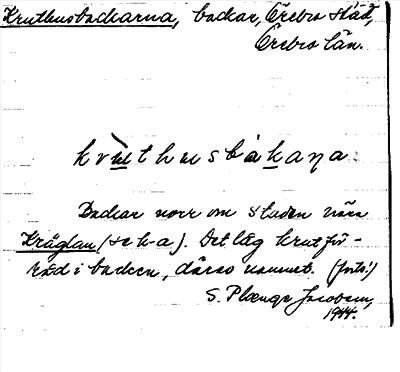 Kruthusbackarna, backar, Örebro stad,
Örebro län.
krùthusbakaṇa
Backar norr om staden nära
Kräglan (se h-a). Det låg krutför-
råd i backen, därav namnet. (forts.)
S. Plænge Jacobson,
1944.